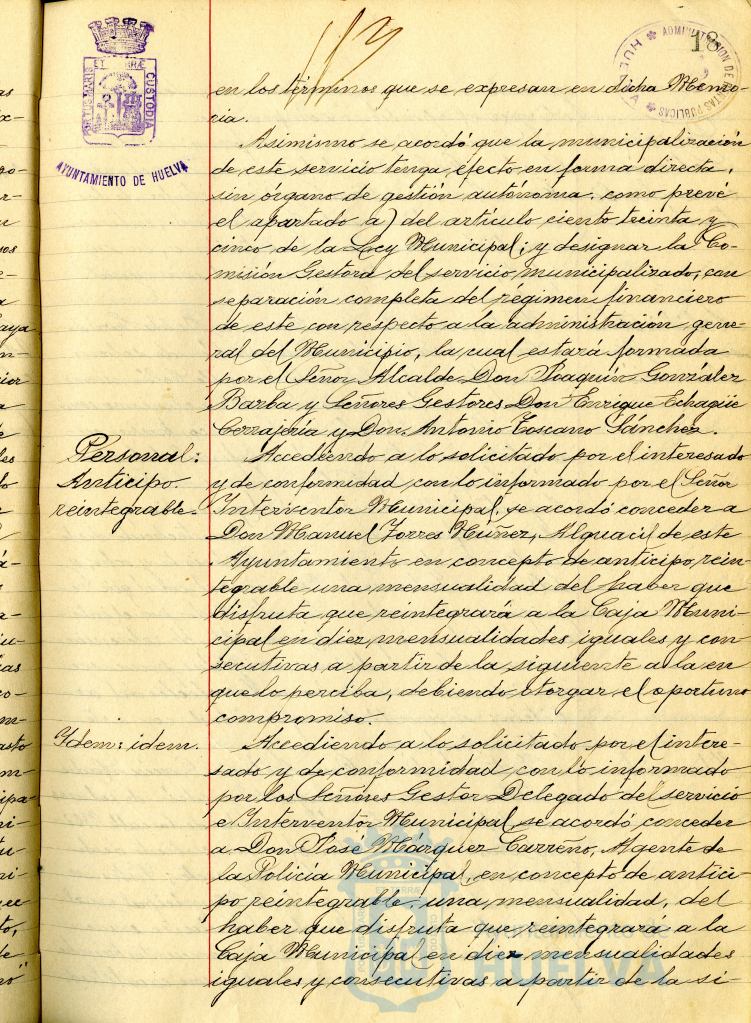 113
18
ADMINISTRACION DE RENTAS PUBLICAS
HUELVA
PORTUS MARIS ET TERRÆ CUSTODIA
AYUNTAMIENTO DE HUELVA
en los términos que se expresan en dicha Memo-
ria.
Asimismo se acordó que la municipalización
de este servicio tenga efecto en forma directa,
sin órgano de gestión autónoma, como prevé
el apartado a) del artículo ciento treinta y
cinco de la Ley Municipal; y designar la Co-
misión Gestora del servicio municipalizado, con
separación completa del régimen financiero
de este con respecto a la administración gene-
ral del Municipio, la cual estará formada
por el Señor Alcalde Don Joaquín González
Barba y Señores Gestores Don Enrique Echagüe
Cerrajería y Don Antonio Toscano Sánchez.
Personal:
Anticipo
reintegrable.
Accediendo a lo solicitado por el interesado
y de conformidad con lo informado por el Señor
Interventor Municipal, se acordó conceder a
Don Manuel Torres Núñez, Alguacil de este
Ayuntamiento en concepto de anticipo rein-
tegrable una mensualidad del haber que
disfruta que reintegrará a la Caja Muni-
cipal en diez mensualidades iguales y con-
secutivas a partir de la siguiente a la en
que lo perciba, debiendo otorgar el oportuno
compromiso.
Idem: idem.
Accediendo a lo solicitado por el intere-
sado y de conformidad con lo informado
por los Señores Gestor Delegado del servicio
e Interventor Municipal, se acordó conceder
a Don José Márquez Carreño, Agente de
la Policía Municipal, en concepto de antici-
po reintegrable, una mensualidad, del
haber que disfruta que reintegrará a la
Caja Municipal en diez mensualidades
iguales y consecutivas a partir de la si-
HUELVA